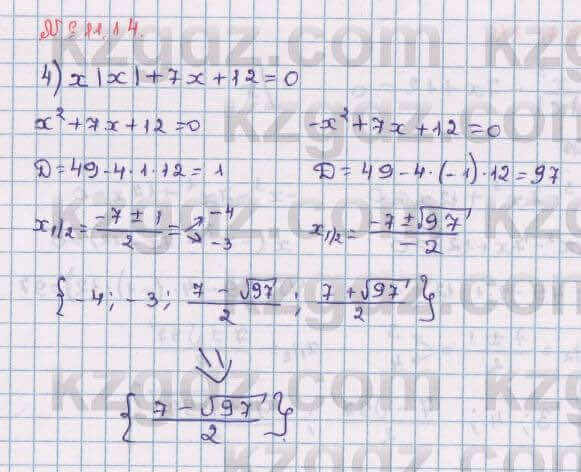 № 11.14.
4) x|x|+7x+12=0
x²+7x+12=0 -x²+7x+12=0
D=49-4·1·12=1 D=49-4·(-1)·12=97
x₁/₂=(-7±1)/2= -4 -3 x₁/₂=(-7±√97)/-2
{-4; -3; (7-√97)/2; (7+√97)/2}
⇓
{(7-√97)/2}